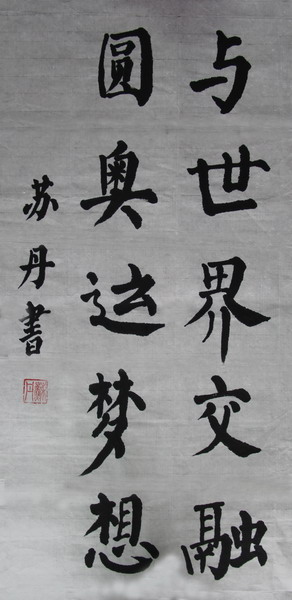 与世界交融
圓奥运梦想
苏丹書